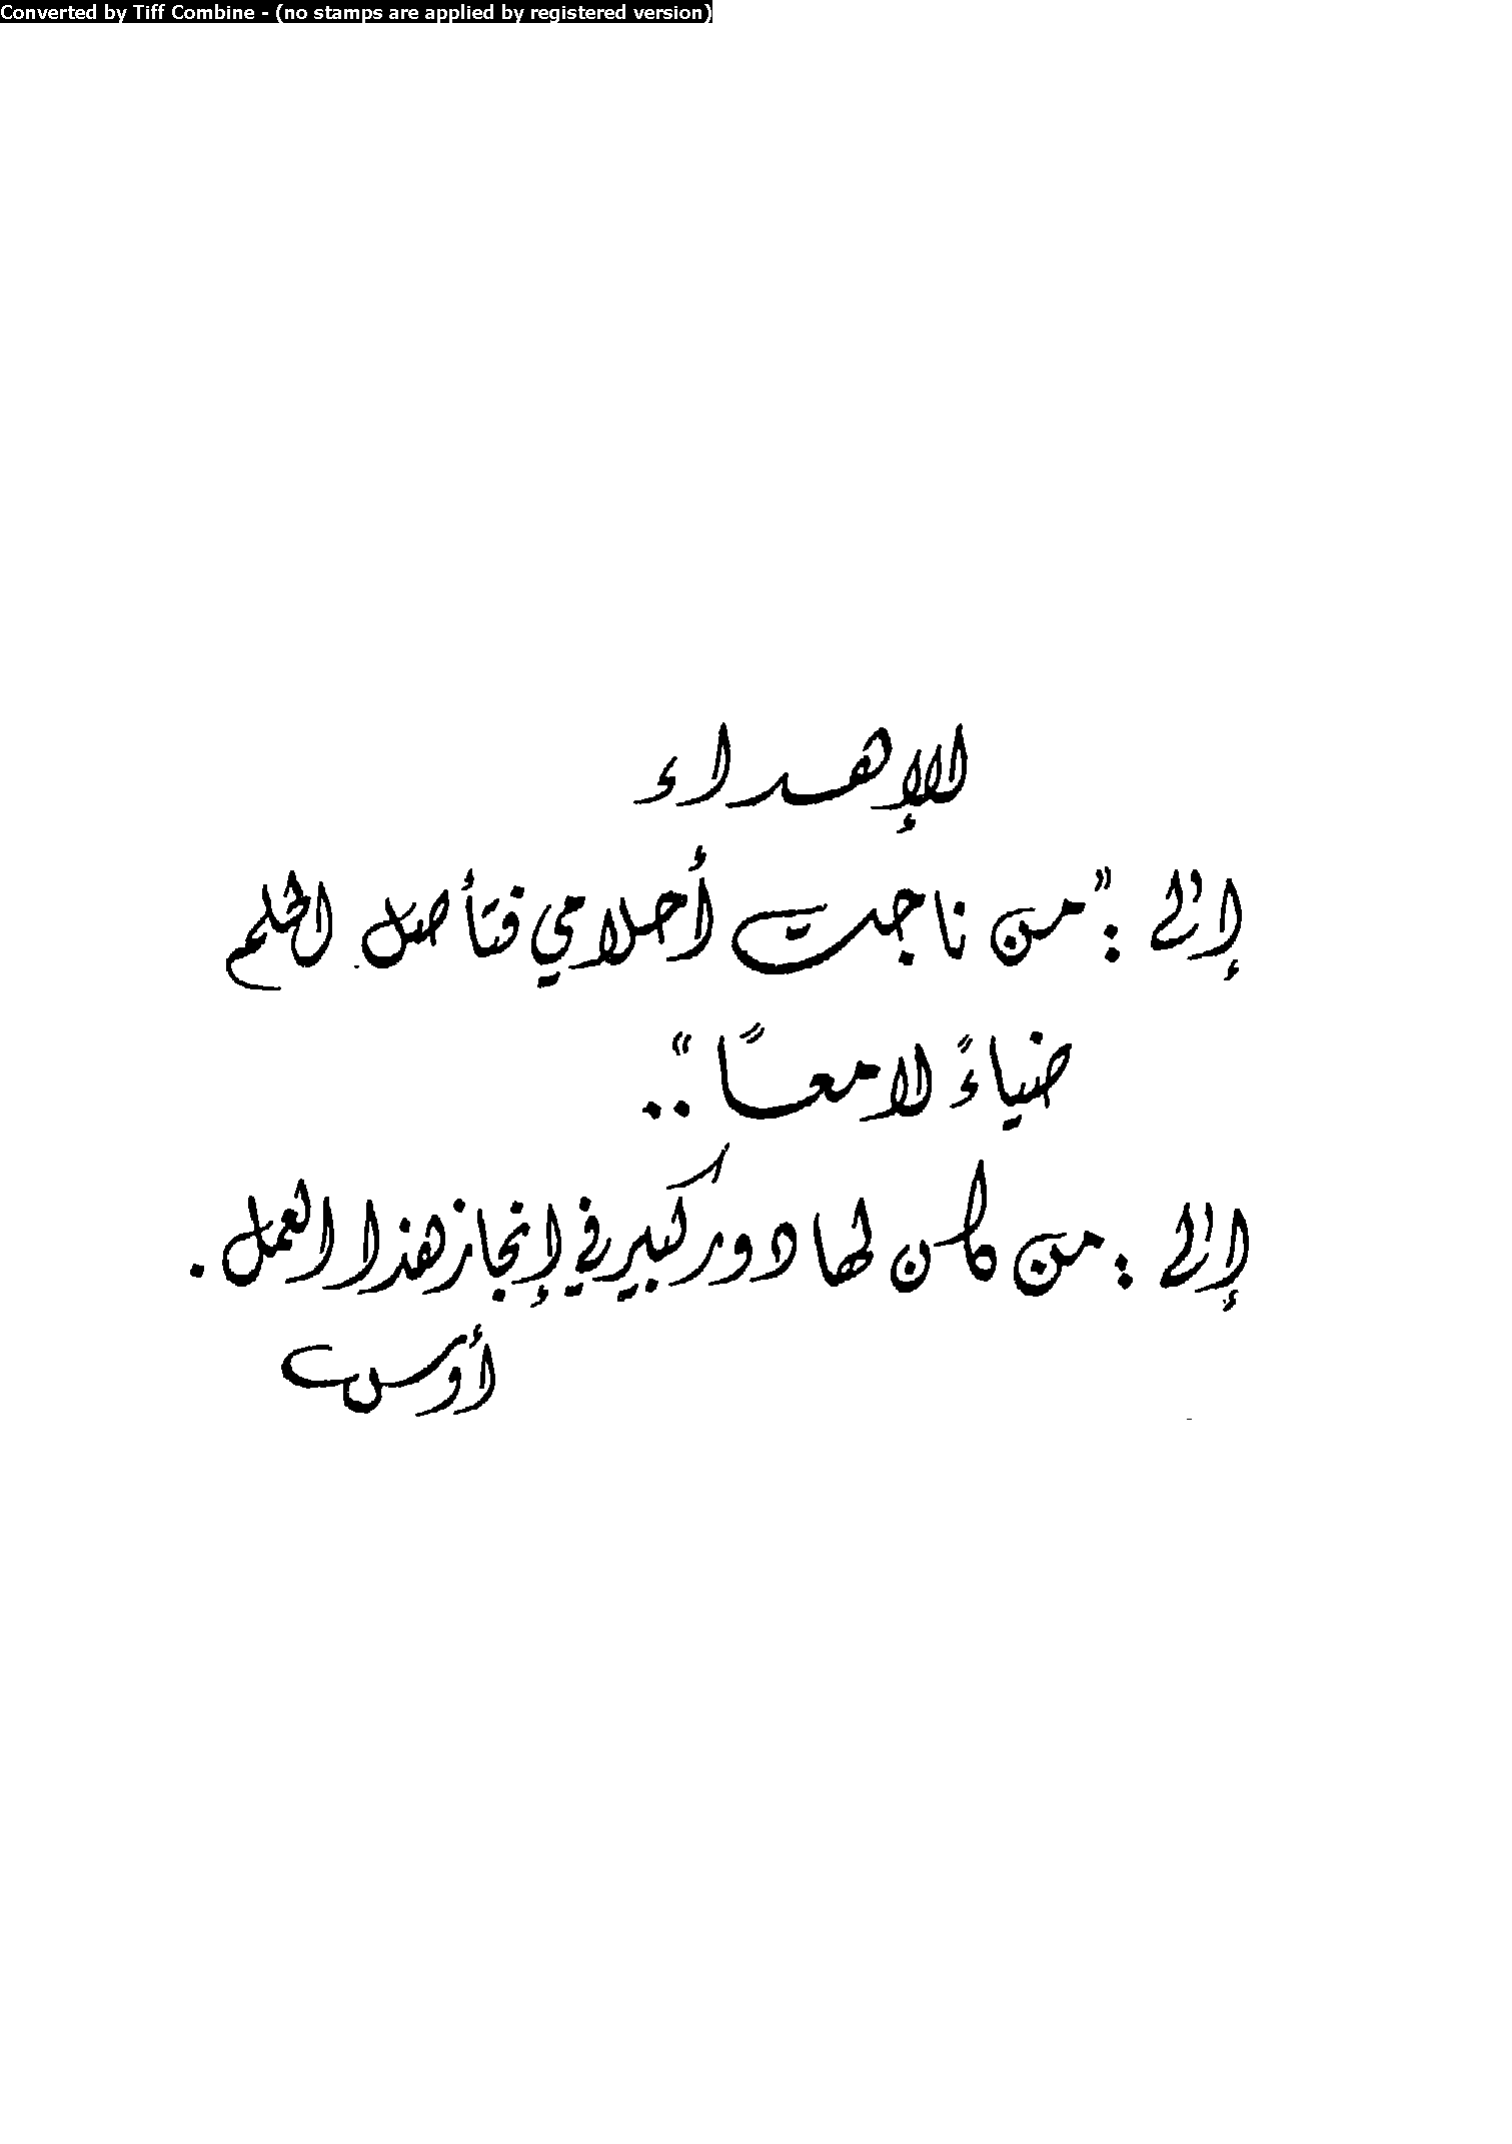 Converted by Tiff Combine - (no stamps are applied by registered version)
الإهداء
إلى : "من ناجت أحلامي فتأصل الحلم
ضياءً لامعاً" ..
إلى : من كان لها دور كبير في إنجاز هذا العمل .
أوس